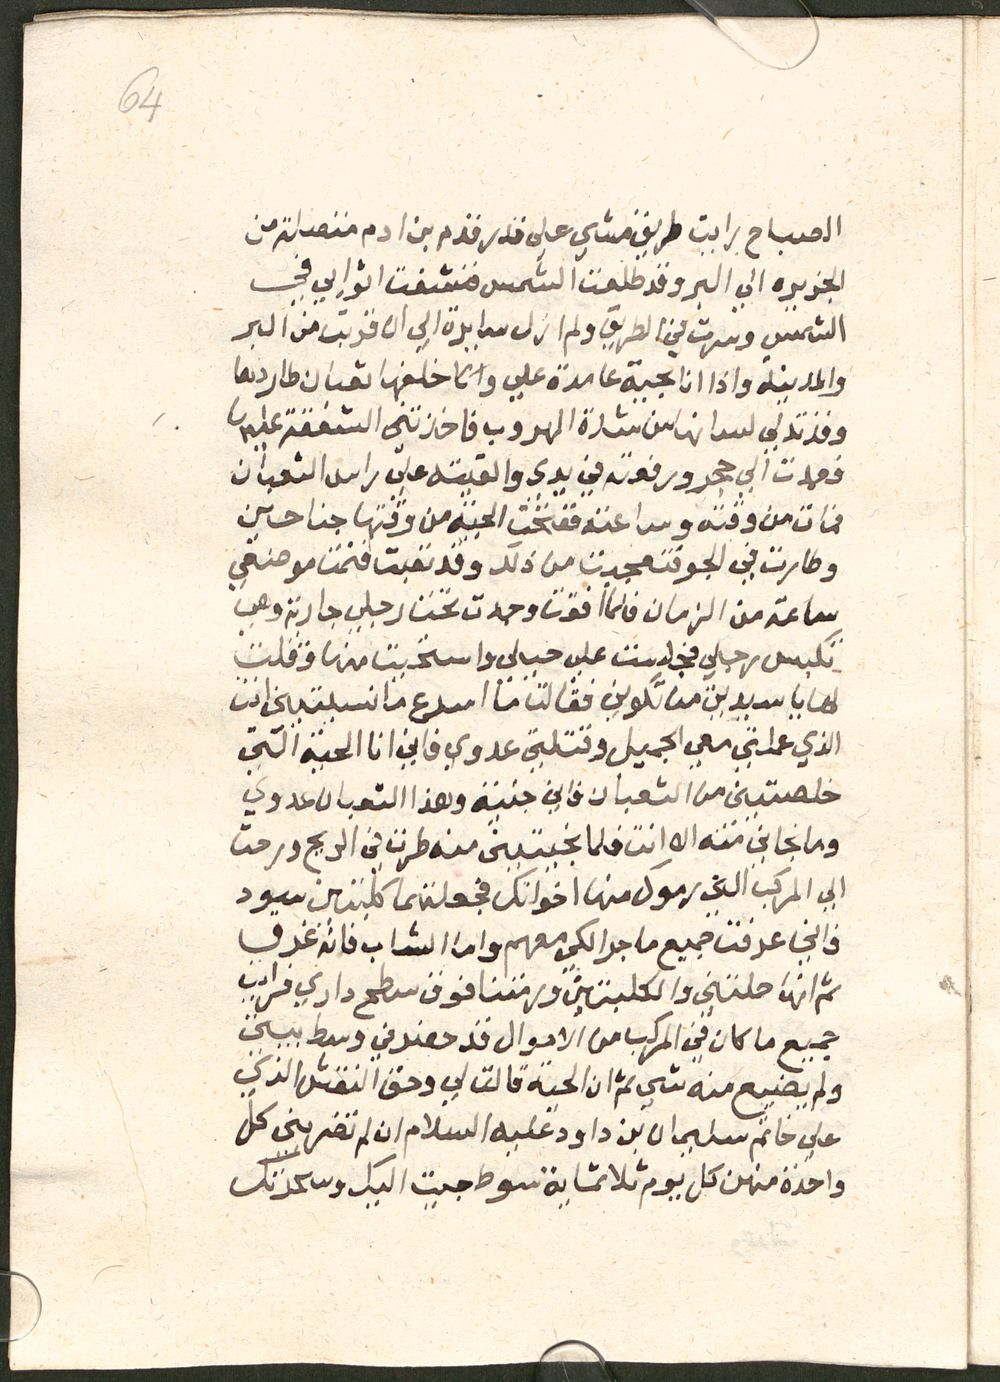 64
الصباح رايت طريق مشي علي قدر قدم بن ادم متصلة من
الجزيره الي البر وقد طلعت الشمس فنشفت اثوابي في
الشمس وسرت في الطريق ولم ازل سايرة الي ان قربت من البر
والمدينة واذا انا بحية عامدة علي وانما خلفها ثعبان طاردها
وقد تدلي لسانها من شدة الهروب فاخذتني الشفقة عليها
فعمدت الي حجر ورفعته في يدي والقيته علي راس الثعبان
فمات من وقته وساعته ففتحت الحية من وقتها جناحين
وطارت في الجو فتعجبت من ذلك وقد تعبت فنمت موضعي
ساعة من الزمان فلما افقت وجدت تحت رجلي جارية وهي
تكبس رجلي فجلست علي حيلي واستحيت منها وقلت
لها يا سيدتي من تكوني فقالت ما اسرع ما نسيتيني انت
الذي عملتي معي الجميل وقتلتي عدوي فاني انا الحية التي
خلصتيني من الثعبان فاني جنية وهذا الثعبان عدوي
وما نجاني منه الا انت فلما نجيتيني منه طرت في الريح ورحت
الي المركب التي رموك منها اخواتك فجعلتهما كلبتين سود
فاني عرفت جميع ما جرالكي معهم واما الشاب فانه غرق
ثم انها حملتني والكلبتين ورمتنا فوق سطح داري فرايت
جميع ما كان في المركب من الاموال قد حضر في وسط بيتي
ولم يضيع منه شي ثم ان الحية قالت لي وحق النقش الذي
علي خاتم سليمان بن داود عليه السلام ان لم تضربي كل
واحدة منهن كل يوم ثلاثماية سوط جيت اليك وسحرتك